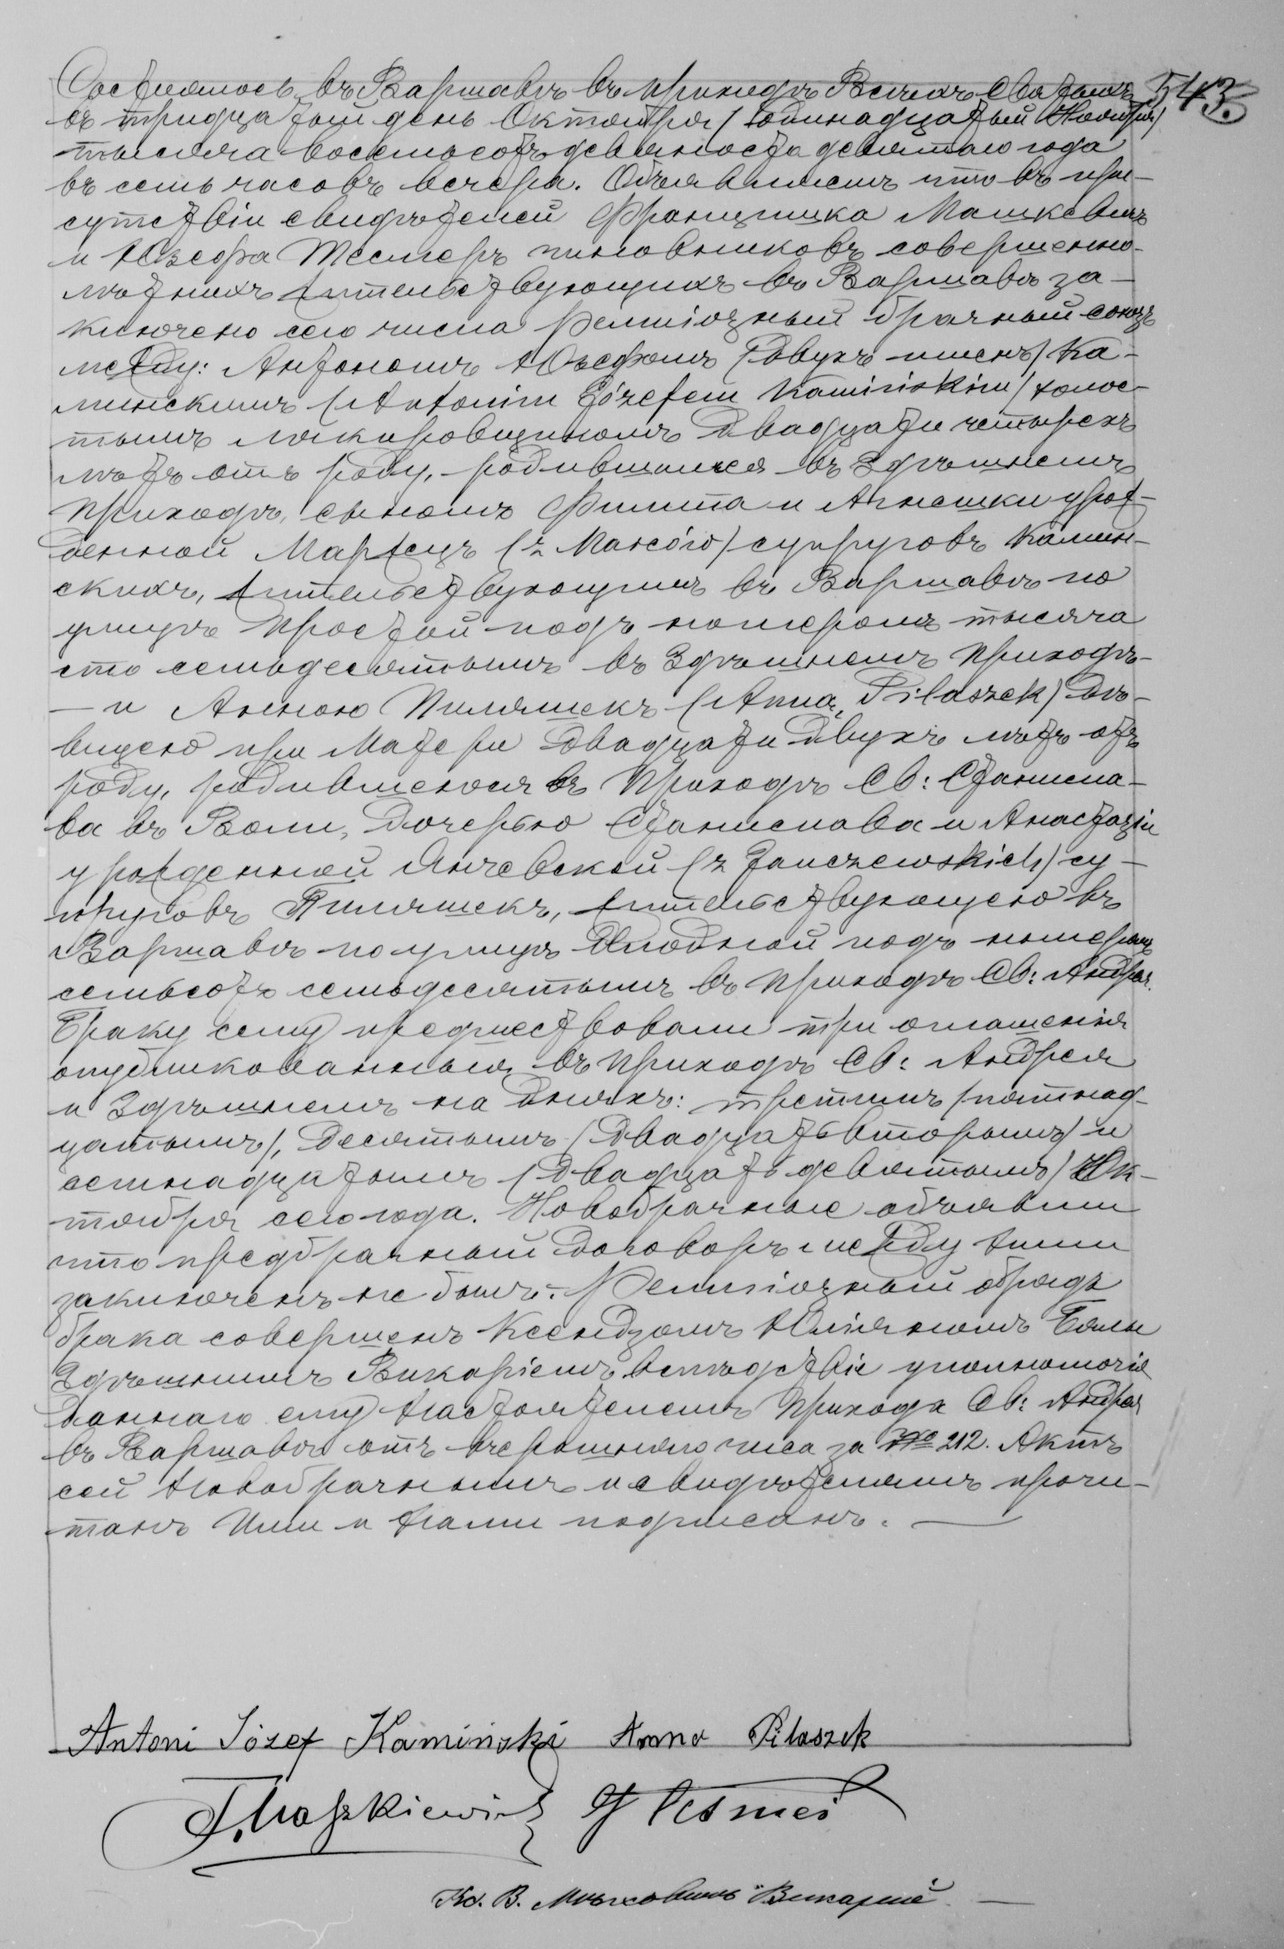 Состоялось въ Варшавѣ въ приходѣ Всѣхъ Святыхъ 543.
въ тридцатый день Октября / одинадцатый Ноября /
тысяча восемьсотъ девяноста девятаго года
въ семь часовъ вечера. Объявляемъ что въ при-
сутствіи свидѣтелей Францишка Машкевичъ
и Юзефа Тесмеръ чиновниковъ совершенно-
лѣтнихъ жительствующихъ въ Варшавѣ за-
ключено сего числа религіозный брачный союзъ
между: Антономъ Юзефомъ / двухъ именъ / Ка-
минскимъ / Antonim Józefem Kamińskim / холос-
тымъ лакировщикомъ двадцати четырехъ
лѣтъ отъ роду, родившимся въ здѣшнемъ
приходѣ, сыномъ Филипа и Агнешки урож-
денной / супруговъ Камин-
скихъ, жительствующимъ въ Варшавѣ по
улицѣ Простой подъ номеромъ тысяча
сто семьдесятымъ въ здѣшнемъ приходѣ-
— и Анною Пиляшекъ / Anna Pilaszek / дѣ-
вицею при матери двадцати двухъ лѣтъ отъ
роду, родившеюся въ приходѣ Св: Станисла-
ва въ Воли, дочерью Станислава и Анастазіи
урожденной Янчевской / z Janczewskich / су-
пруговъ Пиляшекъ, жительствующею въ
Варшавѣ по улицѣ Хлодной подъ номеромъ
семьсотъ семьдесятымъ въ приходѣ Св: Андрея.
Браку сему предшествовали три оглашенія
опубликованныя въ приходѣ Св: Андрея
и здѣшнемъ на дняхъ: третьимъ / пятнад-
цатымъ /, десятымъ / двадцать вторымъ / и
семнадцатымъ / двадцать девятымъ / Ок-
тября сего года. Новобрачные объявили
что предбрачный договоръ между ними
заключенъ не былъ. Религіозный обрядъ
брака совершенъ Ксендзомъ Юліяномъ
здѣшнимъ Викаріемъ вслѣдствіе уполномочія
даннаго ему Настоятелемъ прихода Св: Андрея
въ Варшавѣ отъ вчерашняго числа за № 212. Актъ
сей Новобрачнымъ и свидѣтелямъ прочи-
танъ Ими и Нами подписанъ. —
Antoni Józef Kamiński Anna Pilaszek
F. Maszkiewicz J Tesmer
Кс. В. Викарій —